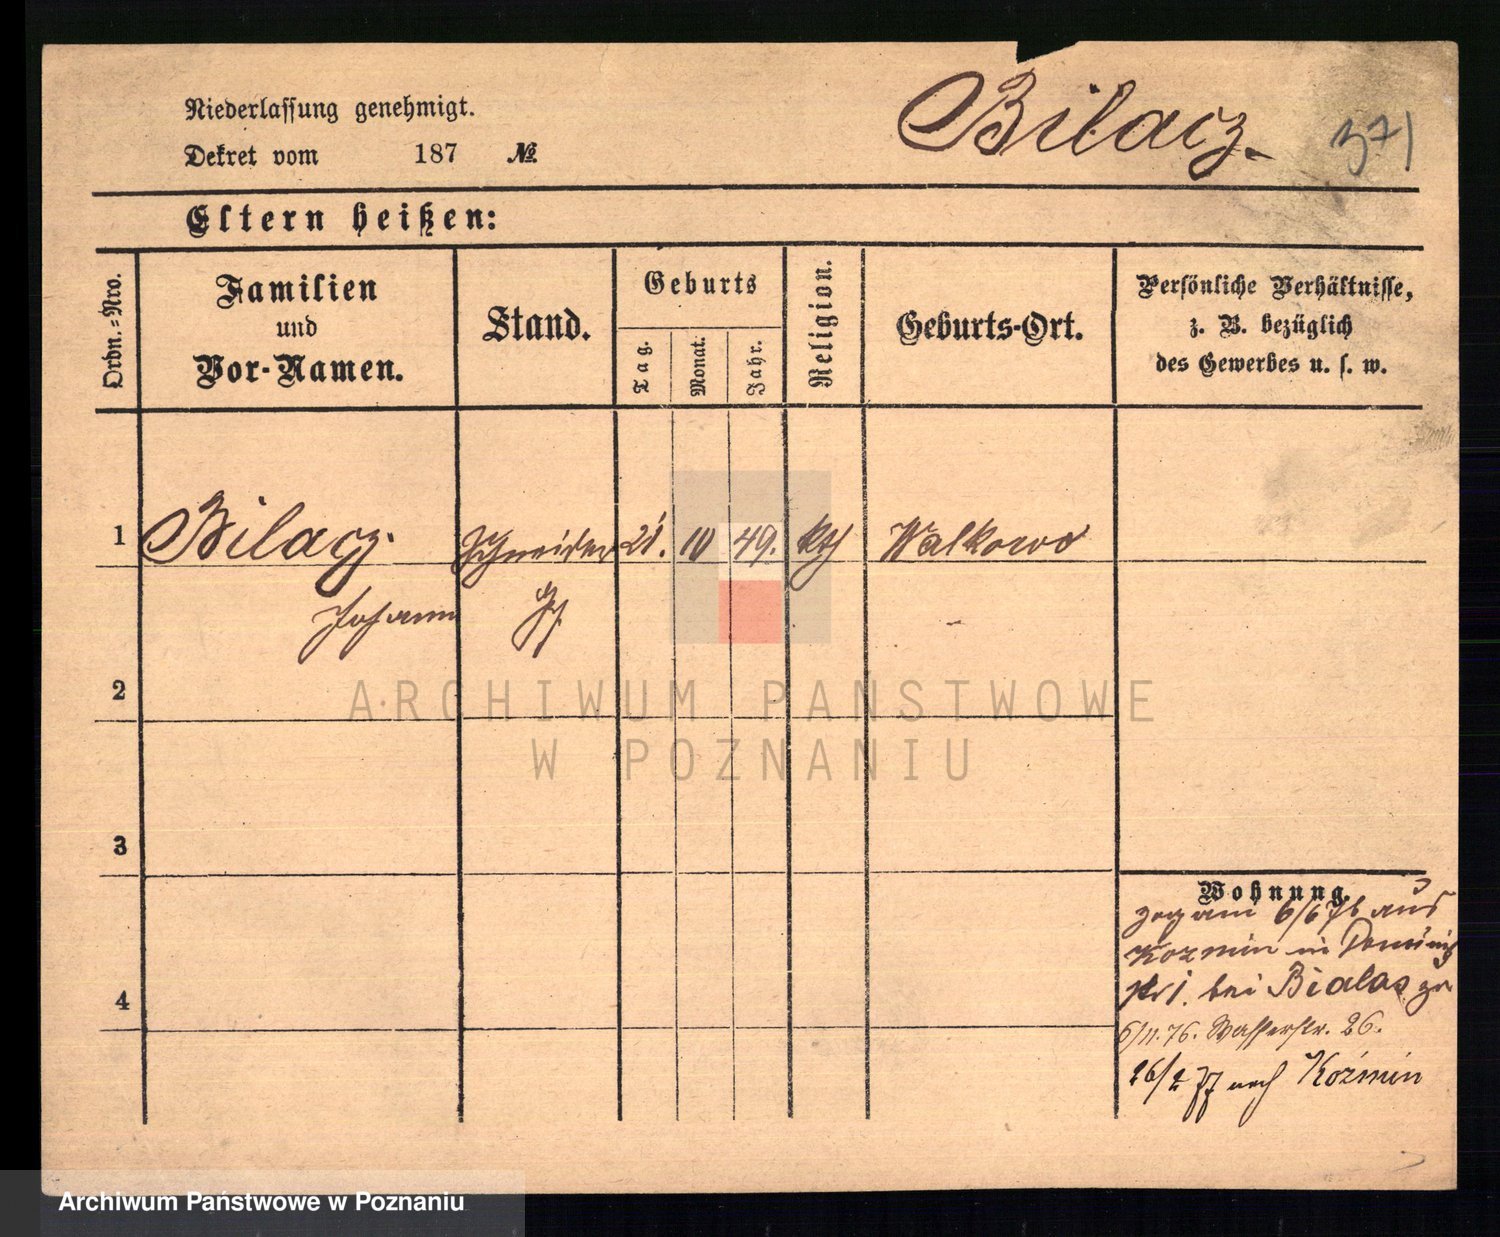 Niederlassung genehmigt.
Dekret vom 187 №
Bilacz.
371
Eltern heißen:
Ordn.=Nro.
Familien
und
Vor-Namen.
Stand.
Geburts
Tag.
Monat.
Jahr.
Religion.
Geburts-Ort.
Persönliche Verhältnisse,
z. B. bezüglich
des Gewerbes u. s. w.
1 Bilacz. Schneider 21. 10 49. kth Walkowo
Johann
2
3
4
Wohnung.
zog am 6/6 76 aus
Kozmin in
bei Bialas
6/11.76. Wasserstr. 26.
26/2 77 nach Koźmin
ARCHIWUM PAŃSTWOWE
W POZNANIU
Archiwum Państwowe w Poznaniu